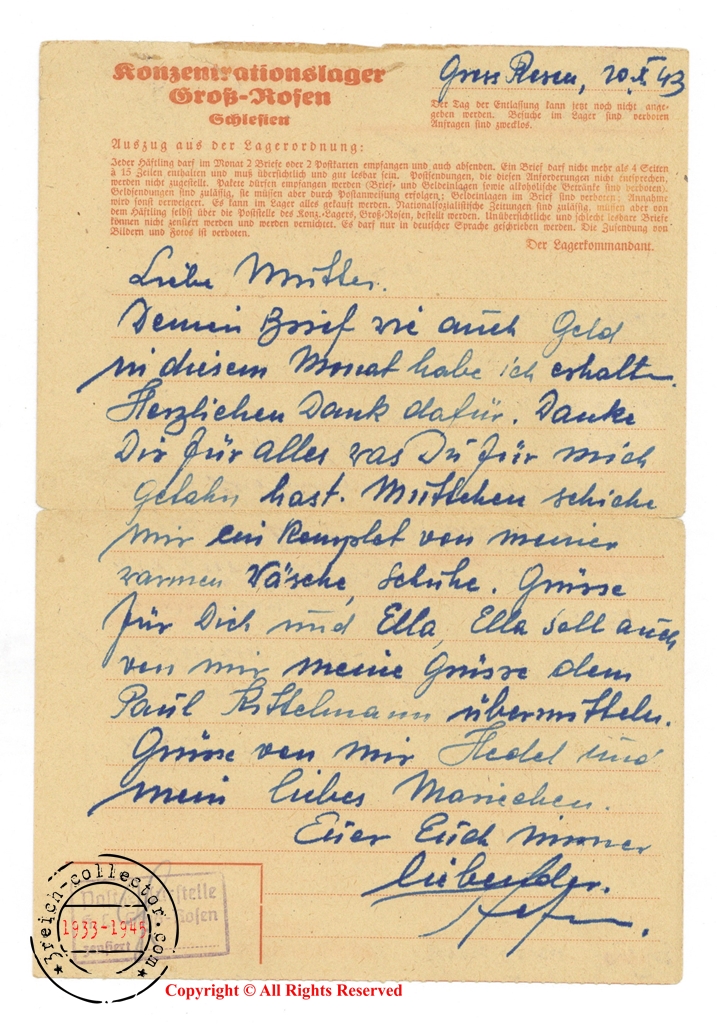 Konzentrationslager
Groß-Rosen
Schlesien
Gross Rosen, 20.X.43
Der Tag der Entlassung kann jetzt noch nicht ange-
geben werden. Besuche im Lager sind verboten
Anfragen sind zwecklos.
Auszug aus der Lagerordnung:
Jeder Häftling darf im Monat 2 Briefe oder 2 Postkarten empfangen und auch absenden. Ein Brief darf nicht mehr als 4 Seiten
à 15 Zeilen enthalten und muß übersichtlich und gut lesbar sein. Postsendungen, die diesen Anforderungen nicht entsprechen,
werden nicht zugestellt. Pakete dürfen empfangen werden (Brief- und Geldeinlagen sowie alkoholische Getränke sind verboten).
Geldsendungen sind zulässig, sie müssen aber durch Postanweisung erfolgen; Geldeinlagen im Brief sind verboten; Annahme
wird sonst verweigert. Es kann im Lager alles gekauft werden. Nationalsozialistische Zeitungen sind zulässig, müssen aber von
dem Häftling selbst über die Poststelle des Konz.-Lagers, Groß-Rosen, bestellt werden. Unübersichtliche und schlecht lesbare Briefe
können nicht zensiert werden und werden vernichtet. Es darf nur in deutscher Sprache geschrieben werden. Die Zusendung von
Bildern und Fotos ist verboten.
Der Lagerkommandant.
Liebe Mutter.
Deinen Brief wie auch Geld
in diesem Monat habe ich erhalten.
Herzlichen Dank dafür. Danke
Dir für alles was Du für mich
getahn hast. Muttchen schicke
mir ein Komplet von meiner
warmen Wäsche, Schuhe. Grüsse
für Dich und Ella, Ella soll auch
von mir meine Grüsse dem
Paul Kittelmann übermitteln.
Grüsse von mir Hedel und
mein liebes Mariechen.
Euer Euch immer
liebender.
Poststelle
Rosen
zensiert
3reich-collector.com
1933-1945
Copyright © All Rights Reserved